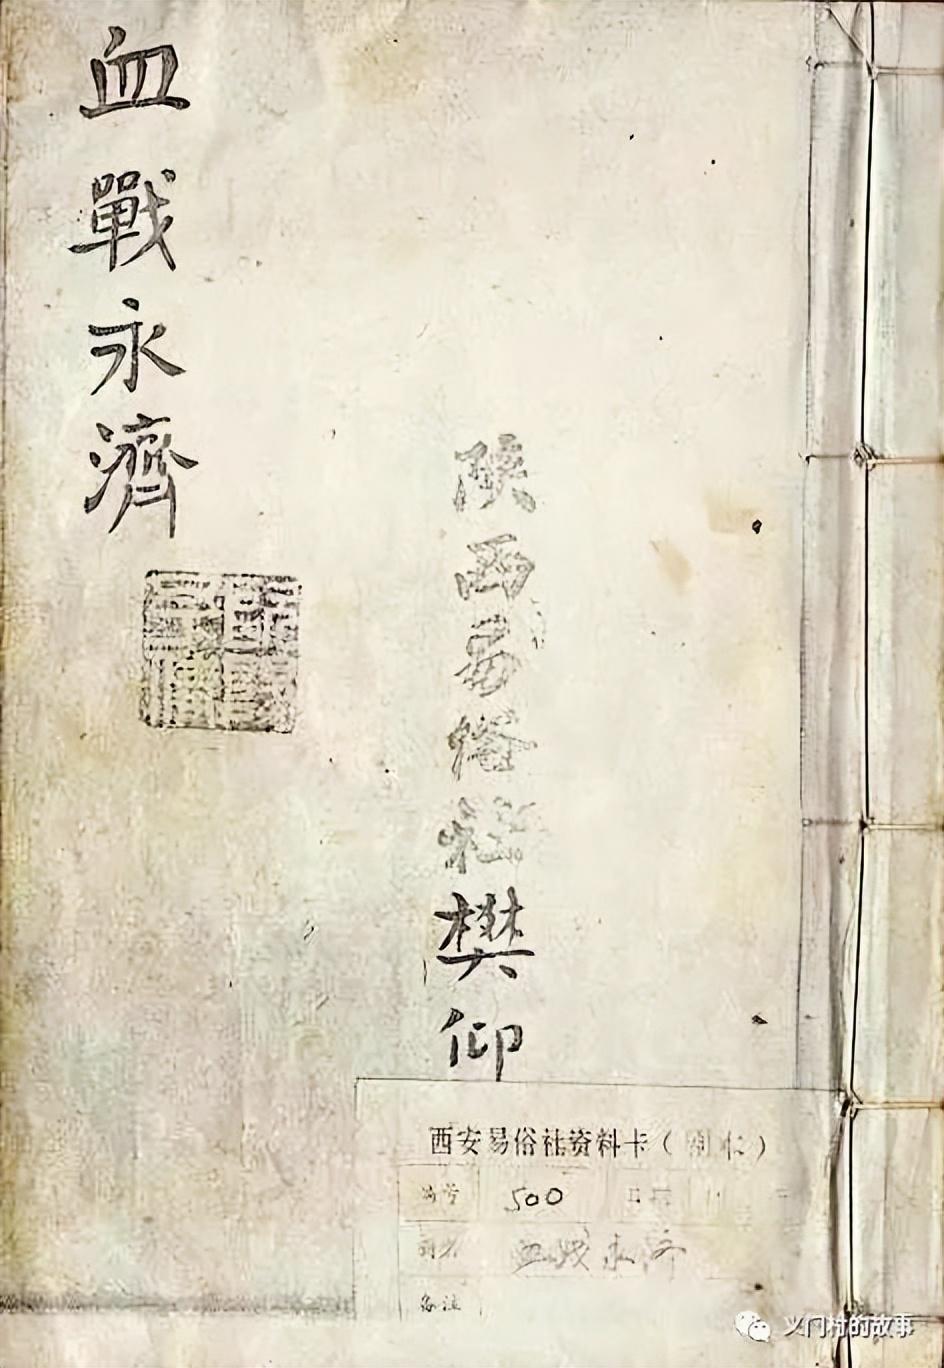 血戰永濟
陕西易俗社樊仰
西安易俗社资料卡（剧本）
编号 500 日期
剧名 血战永济
备注
义门村的故事